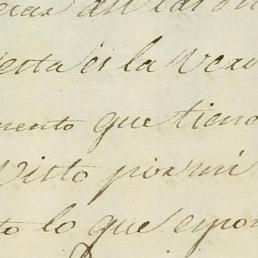 esta es la Verd
mento que tiene
Visto por mi
to lo que espon